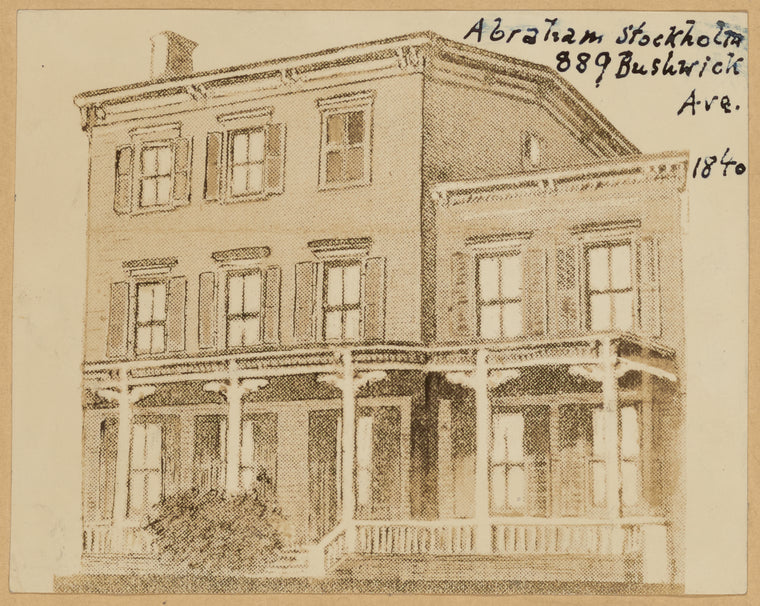 Abraham Stockholm
889 Bushwick
Ave.
1840